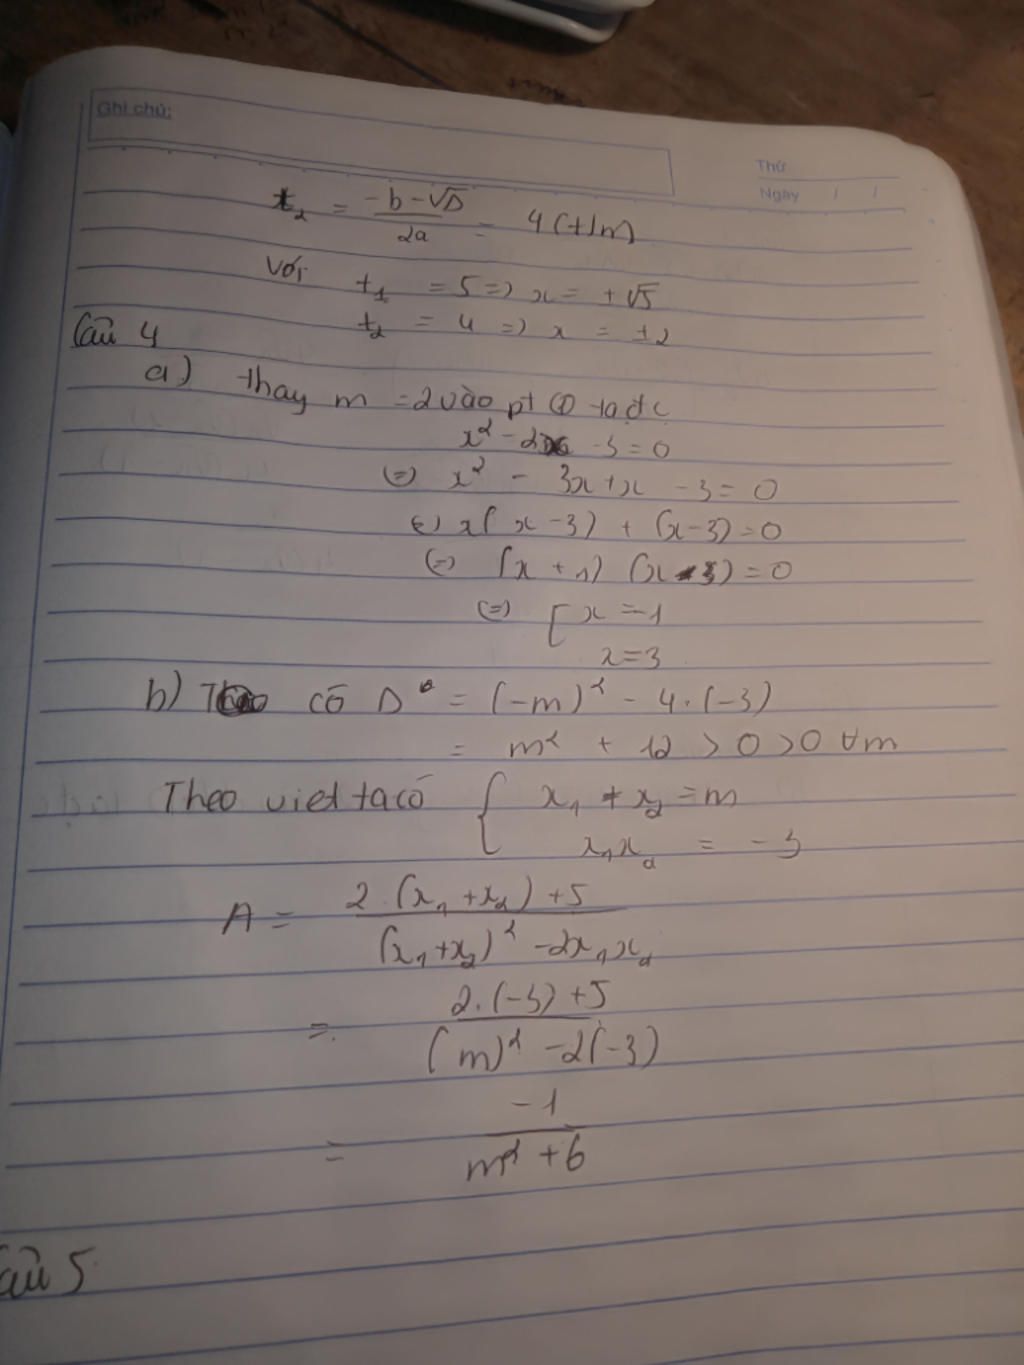 Ghi chú:
Thứ
Ngày / /
t₂ = (-b-√Δ)/2a = 4 (t/m)
Với t₁ = 5 => x = ±√5
t₂ = 4 => x = ±2
Câu 4
a) thay m = 2 vào pt ① ta đc
x² - 2x - 3 = 0
(=) x² - 3x + x - 3 = 0
(=) x(x - 3) + (x - 3) = 0
(=) (x + 1) (x - 3) = 0
(=) [ x = -1
x = 3
b) có Δ = (-m)² - 4.(-3)
= m² + 12 > 0 > 0 ∀m
Theo viet ta có { x₁ + x₂ = m
x₁x₂ = -3
A = (2.(x₁ + x₂) + 5)/((x₁ + x₂)² - 2x₁x₂)
= (2.(-3) + 5)/((m)² - 2(-3))
= -1/(m² + 6)
Câu 5